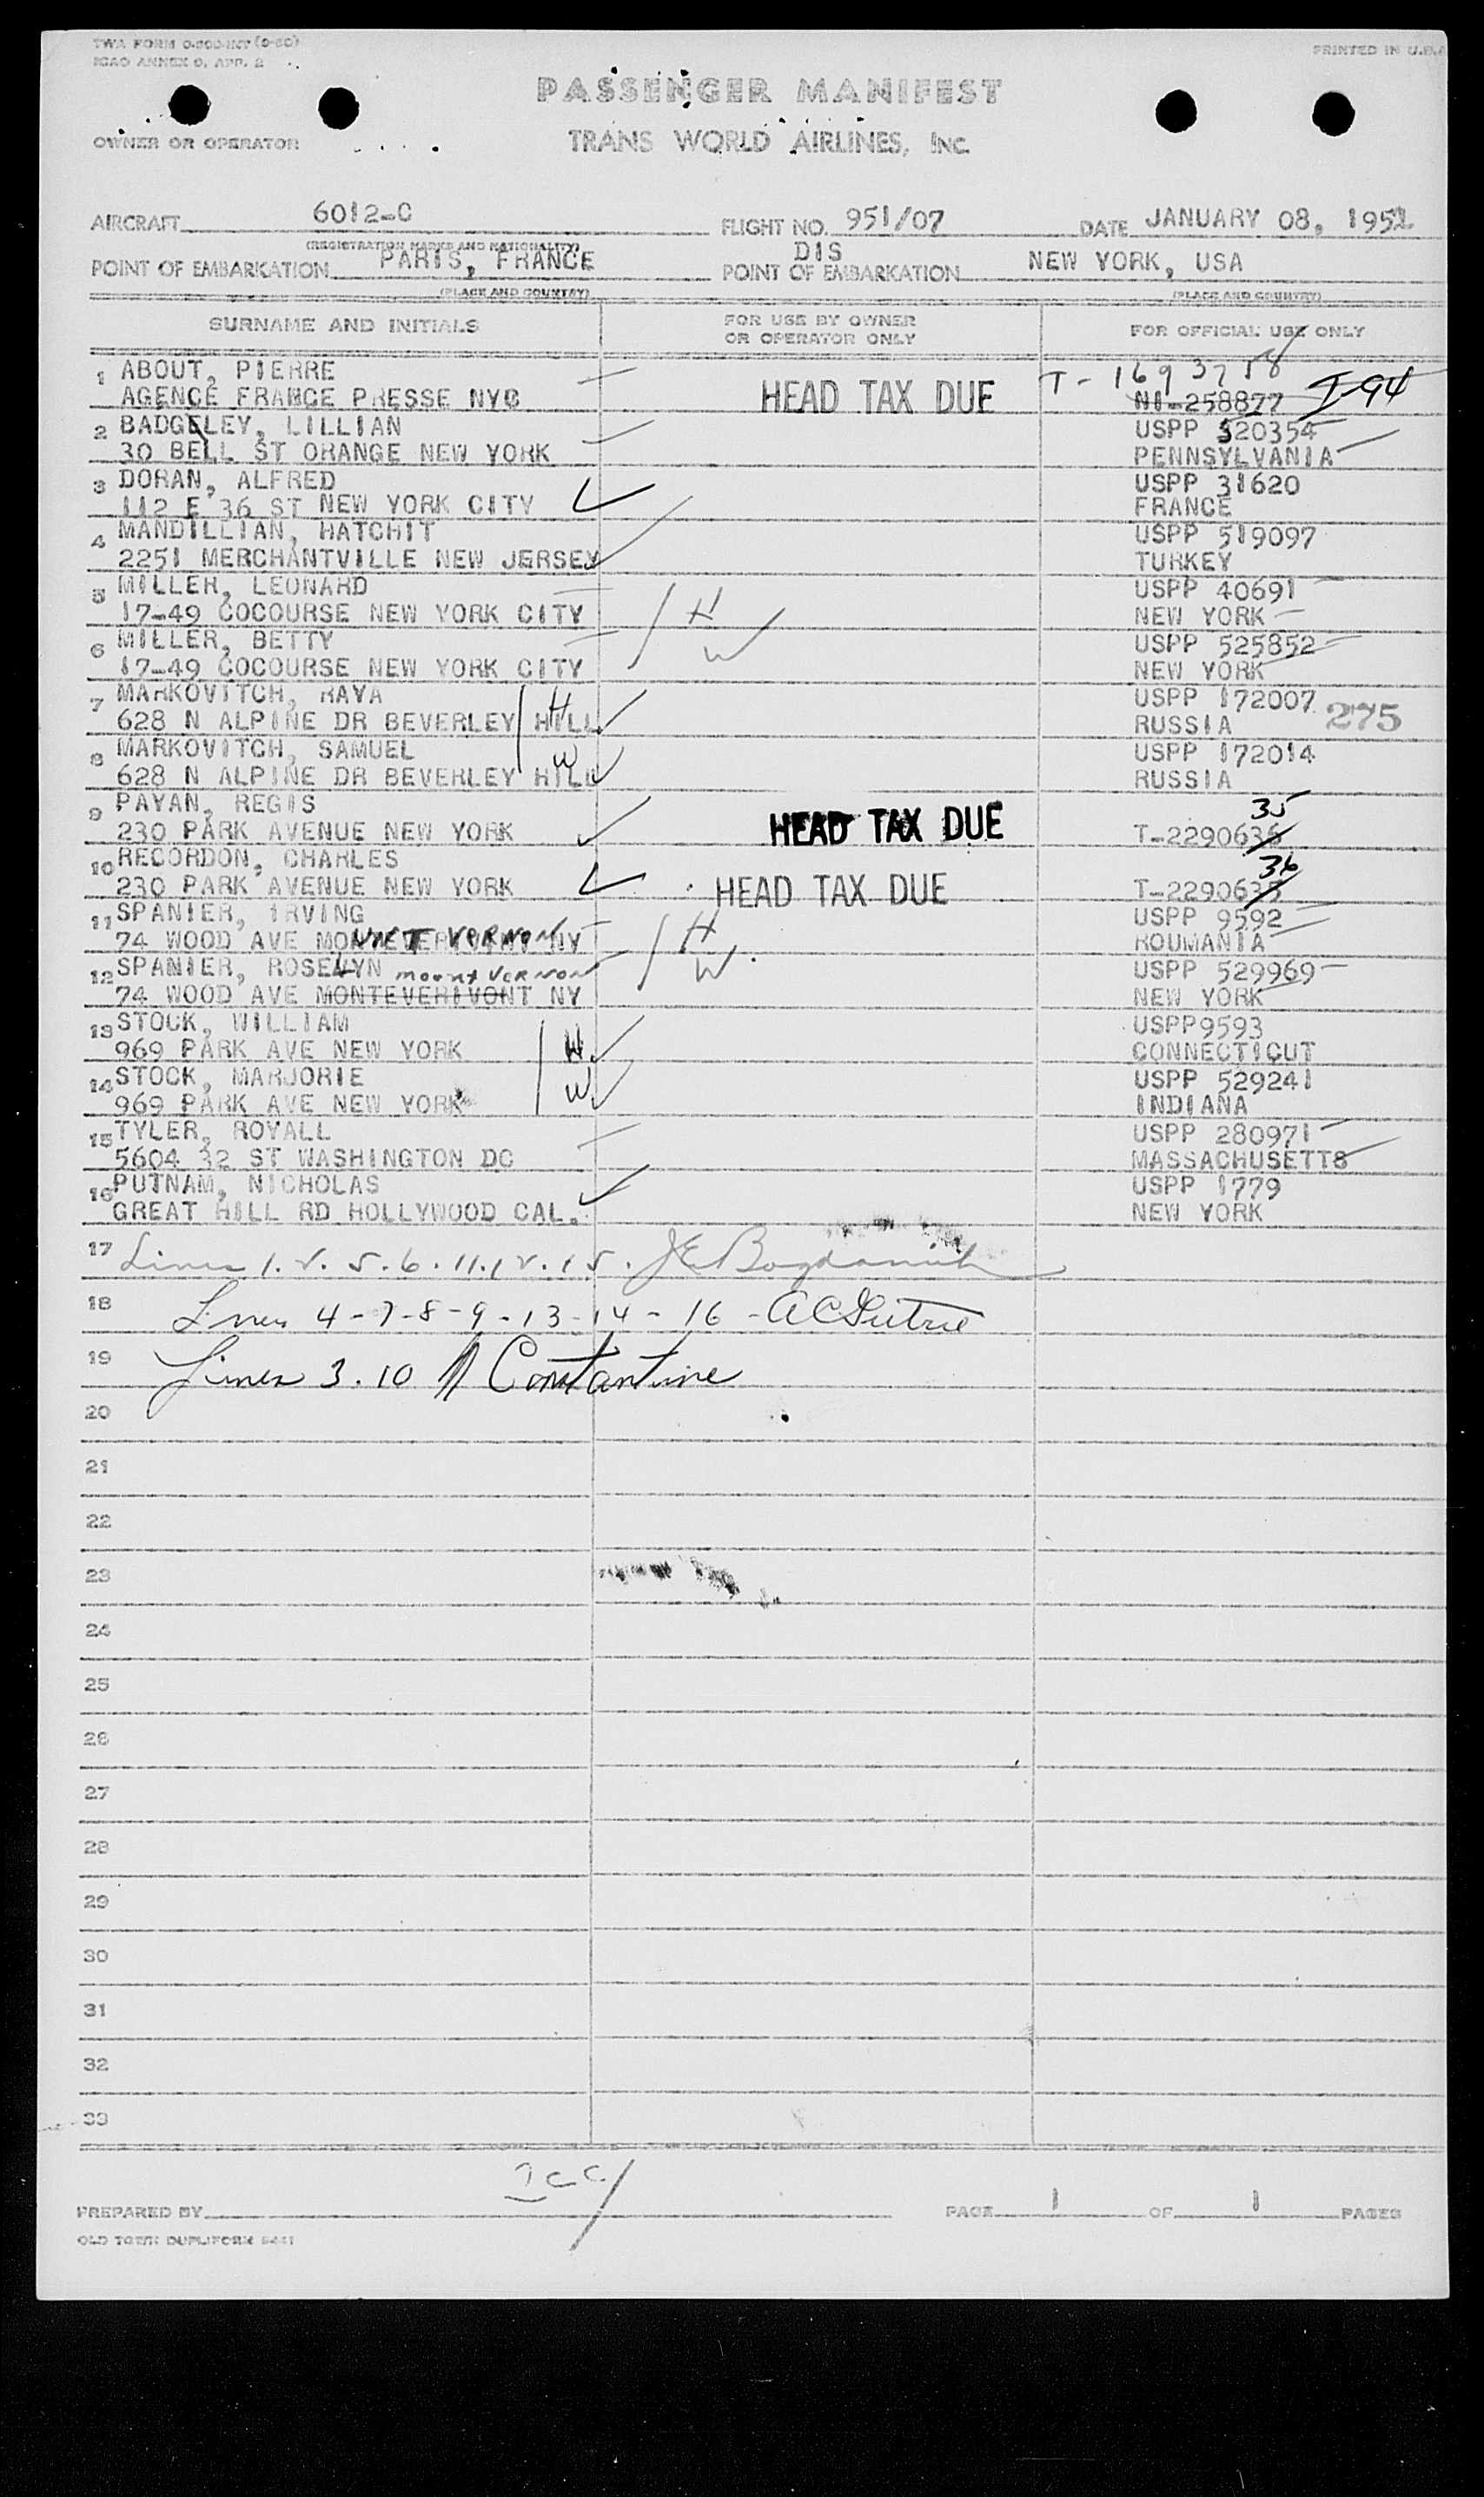 TWA FORM O-800-INT (9-50)
ICAO ANNEX 9, APP. 2
PRINTED IN U.S.A
PASSENGER MANIFEST
OWNER OR OPERATOR
TRANS WORLD AIRLINES, INC.
AIRCRAFT 6012-C FLIGHT NO. 951/07 DATE JANUARY 08, 1952
(REGISTRATION MARKS AND NATIONALITY)
DIS
POINT OF EMBARKATION PARIS, FRANCE POINT OF EMBARKATION NEW YORK, USA
(PLACE AND COUNTRY) (PLACE AND COUNTRY)
SURNAME AND INITIALS FOR USE BY OWNER OR OPERATOR ONLY FOR OFFICIAL USE ONLY
1 ABOUT, PIERRE T-1693758
AGENCE FRANCE PRESSE NYC HEAD TAX DUE NI-258877 I-94
2 BADGELEY, LILLIAN USPP 520354
30 BELL ST ORANGE NEW YORK PENNSYLVANIA
3 DORAN, ALFRED USPP 31620
112 E 36 ST NEW YORK CITY FRANCE
4 MANDILLIAN, HATCHIT USPP 519097
2251 MERCHANTVILLE NEW JERSEY TURKEY
5 MILLER, LEONARD USPP 40691
17-49 COCOURSE NEW YORK CITY H NEW YORK
6 MILLER, BETTY W USPP 525852
17-49 COCOURSE NEW YORK CITY NEW YORK
7 MARKOVITCH, RAYA H USPP 172007
628 N ALPINE DR BEVERLEY HILL RUSSIA 275
8 MARKOVITCH, SAMUEL W USPP 172014
628 N ALPINE DR BEVERLEY HILL RUSSIA
9 PAYAN, REGIS 35
230 PARK AVENUE NEW YORK HEAD TAX DUE T-2290636
10 RECORDON, CHARLES 36
230 PARK AVENUE NEW YORK HEAD TAX DUE T-2290635
11 SPANIER, IRVING H USPP 9592
74 WOOD AVE MOUNT VERNON NY ROUMANIA
12 SPANIER, ROSELYN MOUNT VERNON W USPP 529969
74 WOOD AVE MONTEVERIVONT NY NEW YORK
13 STOCK, WILLIAM USPP9593
969 PARK AVE NEW YORK H CONNECTICUT
14 STOCK, MARJORIE W USPP 529241
969 PARK AVE NEW YORK INDIANA
15 TYLER, ROYALL USPP 280971
5604 32 ST WASHINGTON DC MASSACHUSETTS
16 PUTNAM, NICHOLAS USPP 1779
GREAT HILL RD HOLLYWOOD CAL. NEW YORK
17 Lines 1. 2. 5. 6. 11. 12. 15. JE Bogdanich
18 Lines 4-7-8-9-13-14-16 - AC
19 Lines 3. 10 Constantine
20
21
22
23
24
25
26
27
28
29
30
31
32
33
PREPARED BY PAGE 1 OF 1 PAGES
OLD TOWN DUPLIFORM